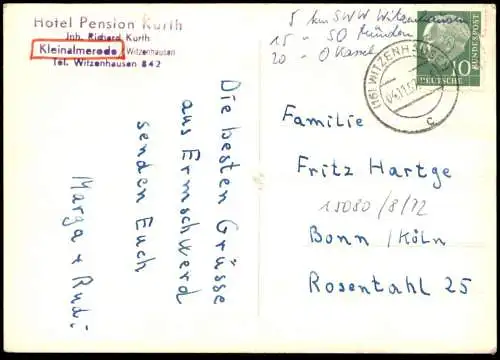 Hotel Pension Kurth
Inh. Richard Kurth
Kleinalmerode, Witzenhausen
Tel. Witzenhausen 842
5 km SWW Witzenhausen
15 - SO Münden
20 - O Kassel
(16) WITZENHAUSEN
04.11.57
c
DEUTSCHE
BUNDESPOST
10
Die besten Grüsse
aus Ermschwerd
senden Euch
Marga + Rudi
Familie
Fritz Hartge
15080/8/12
Bonn/Köln
Rosentahl 25